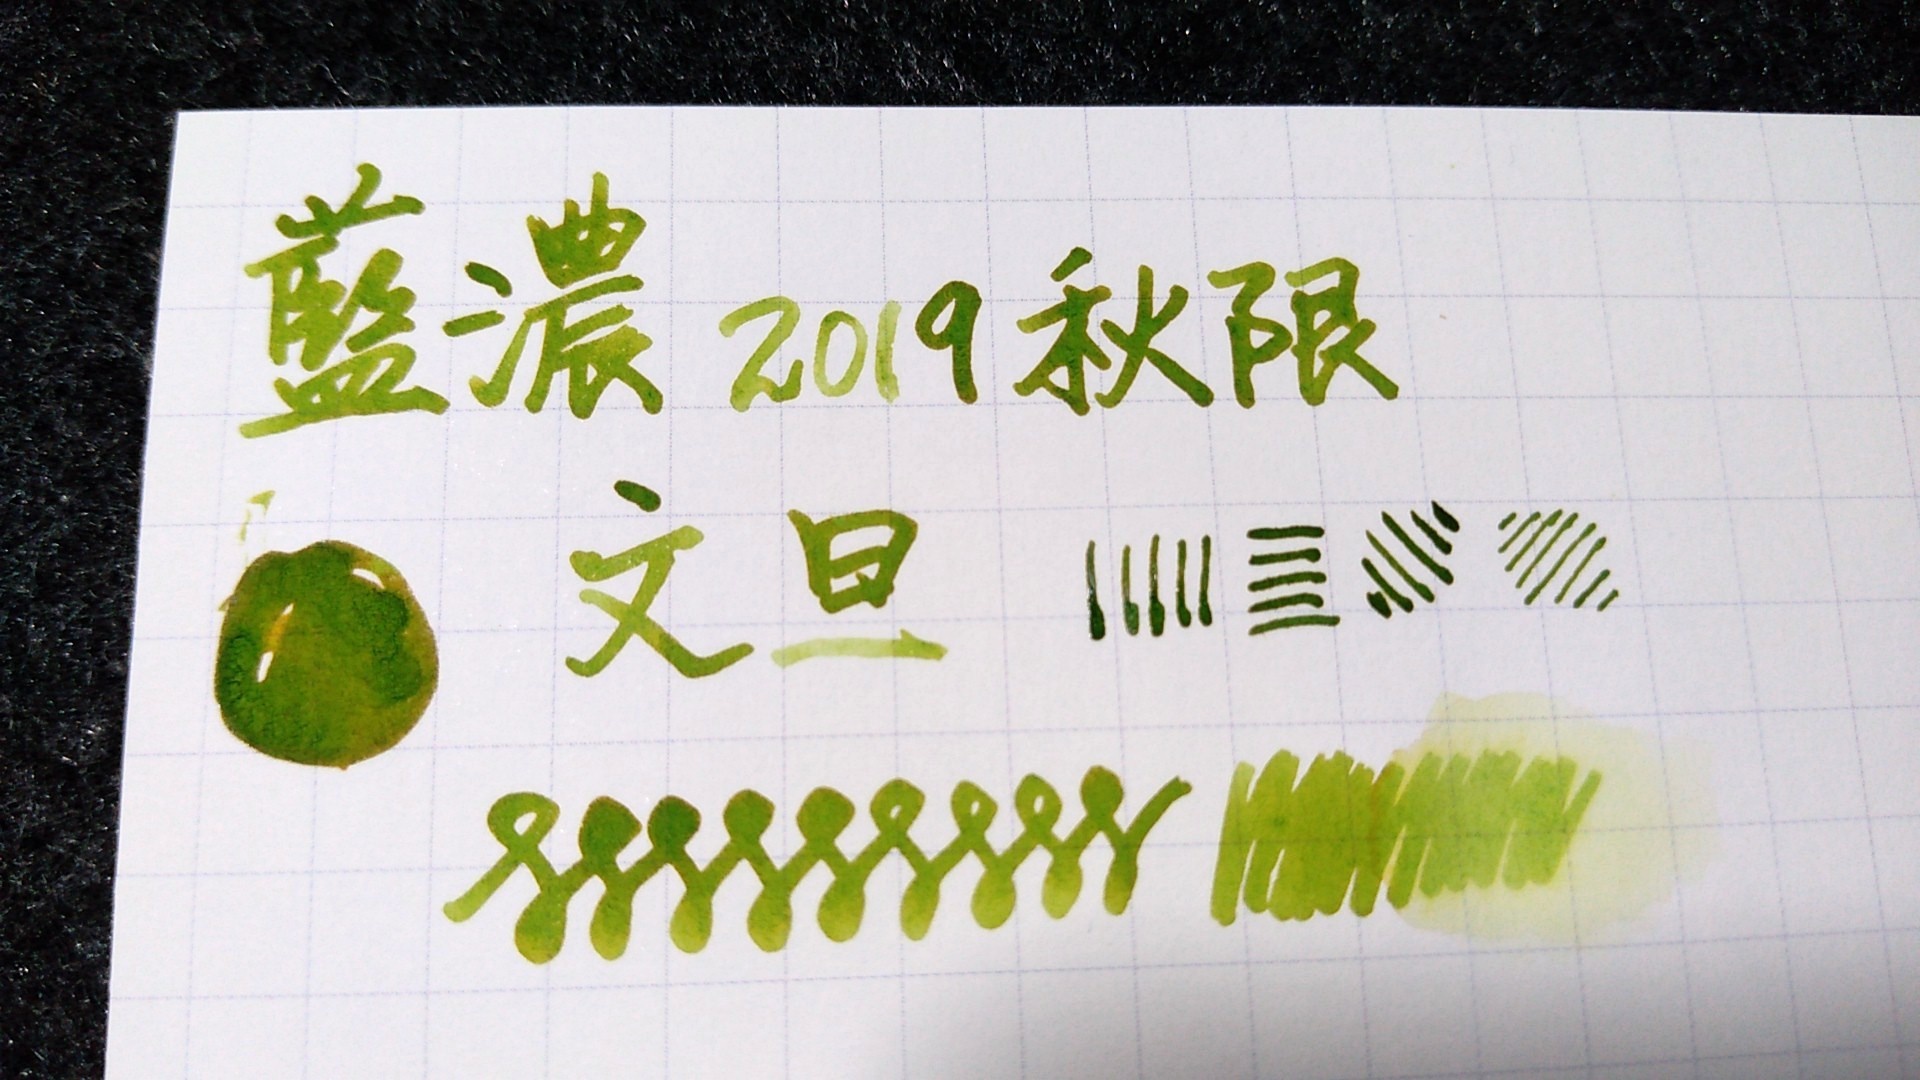 藍濃2019秋限
文旦